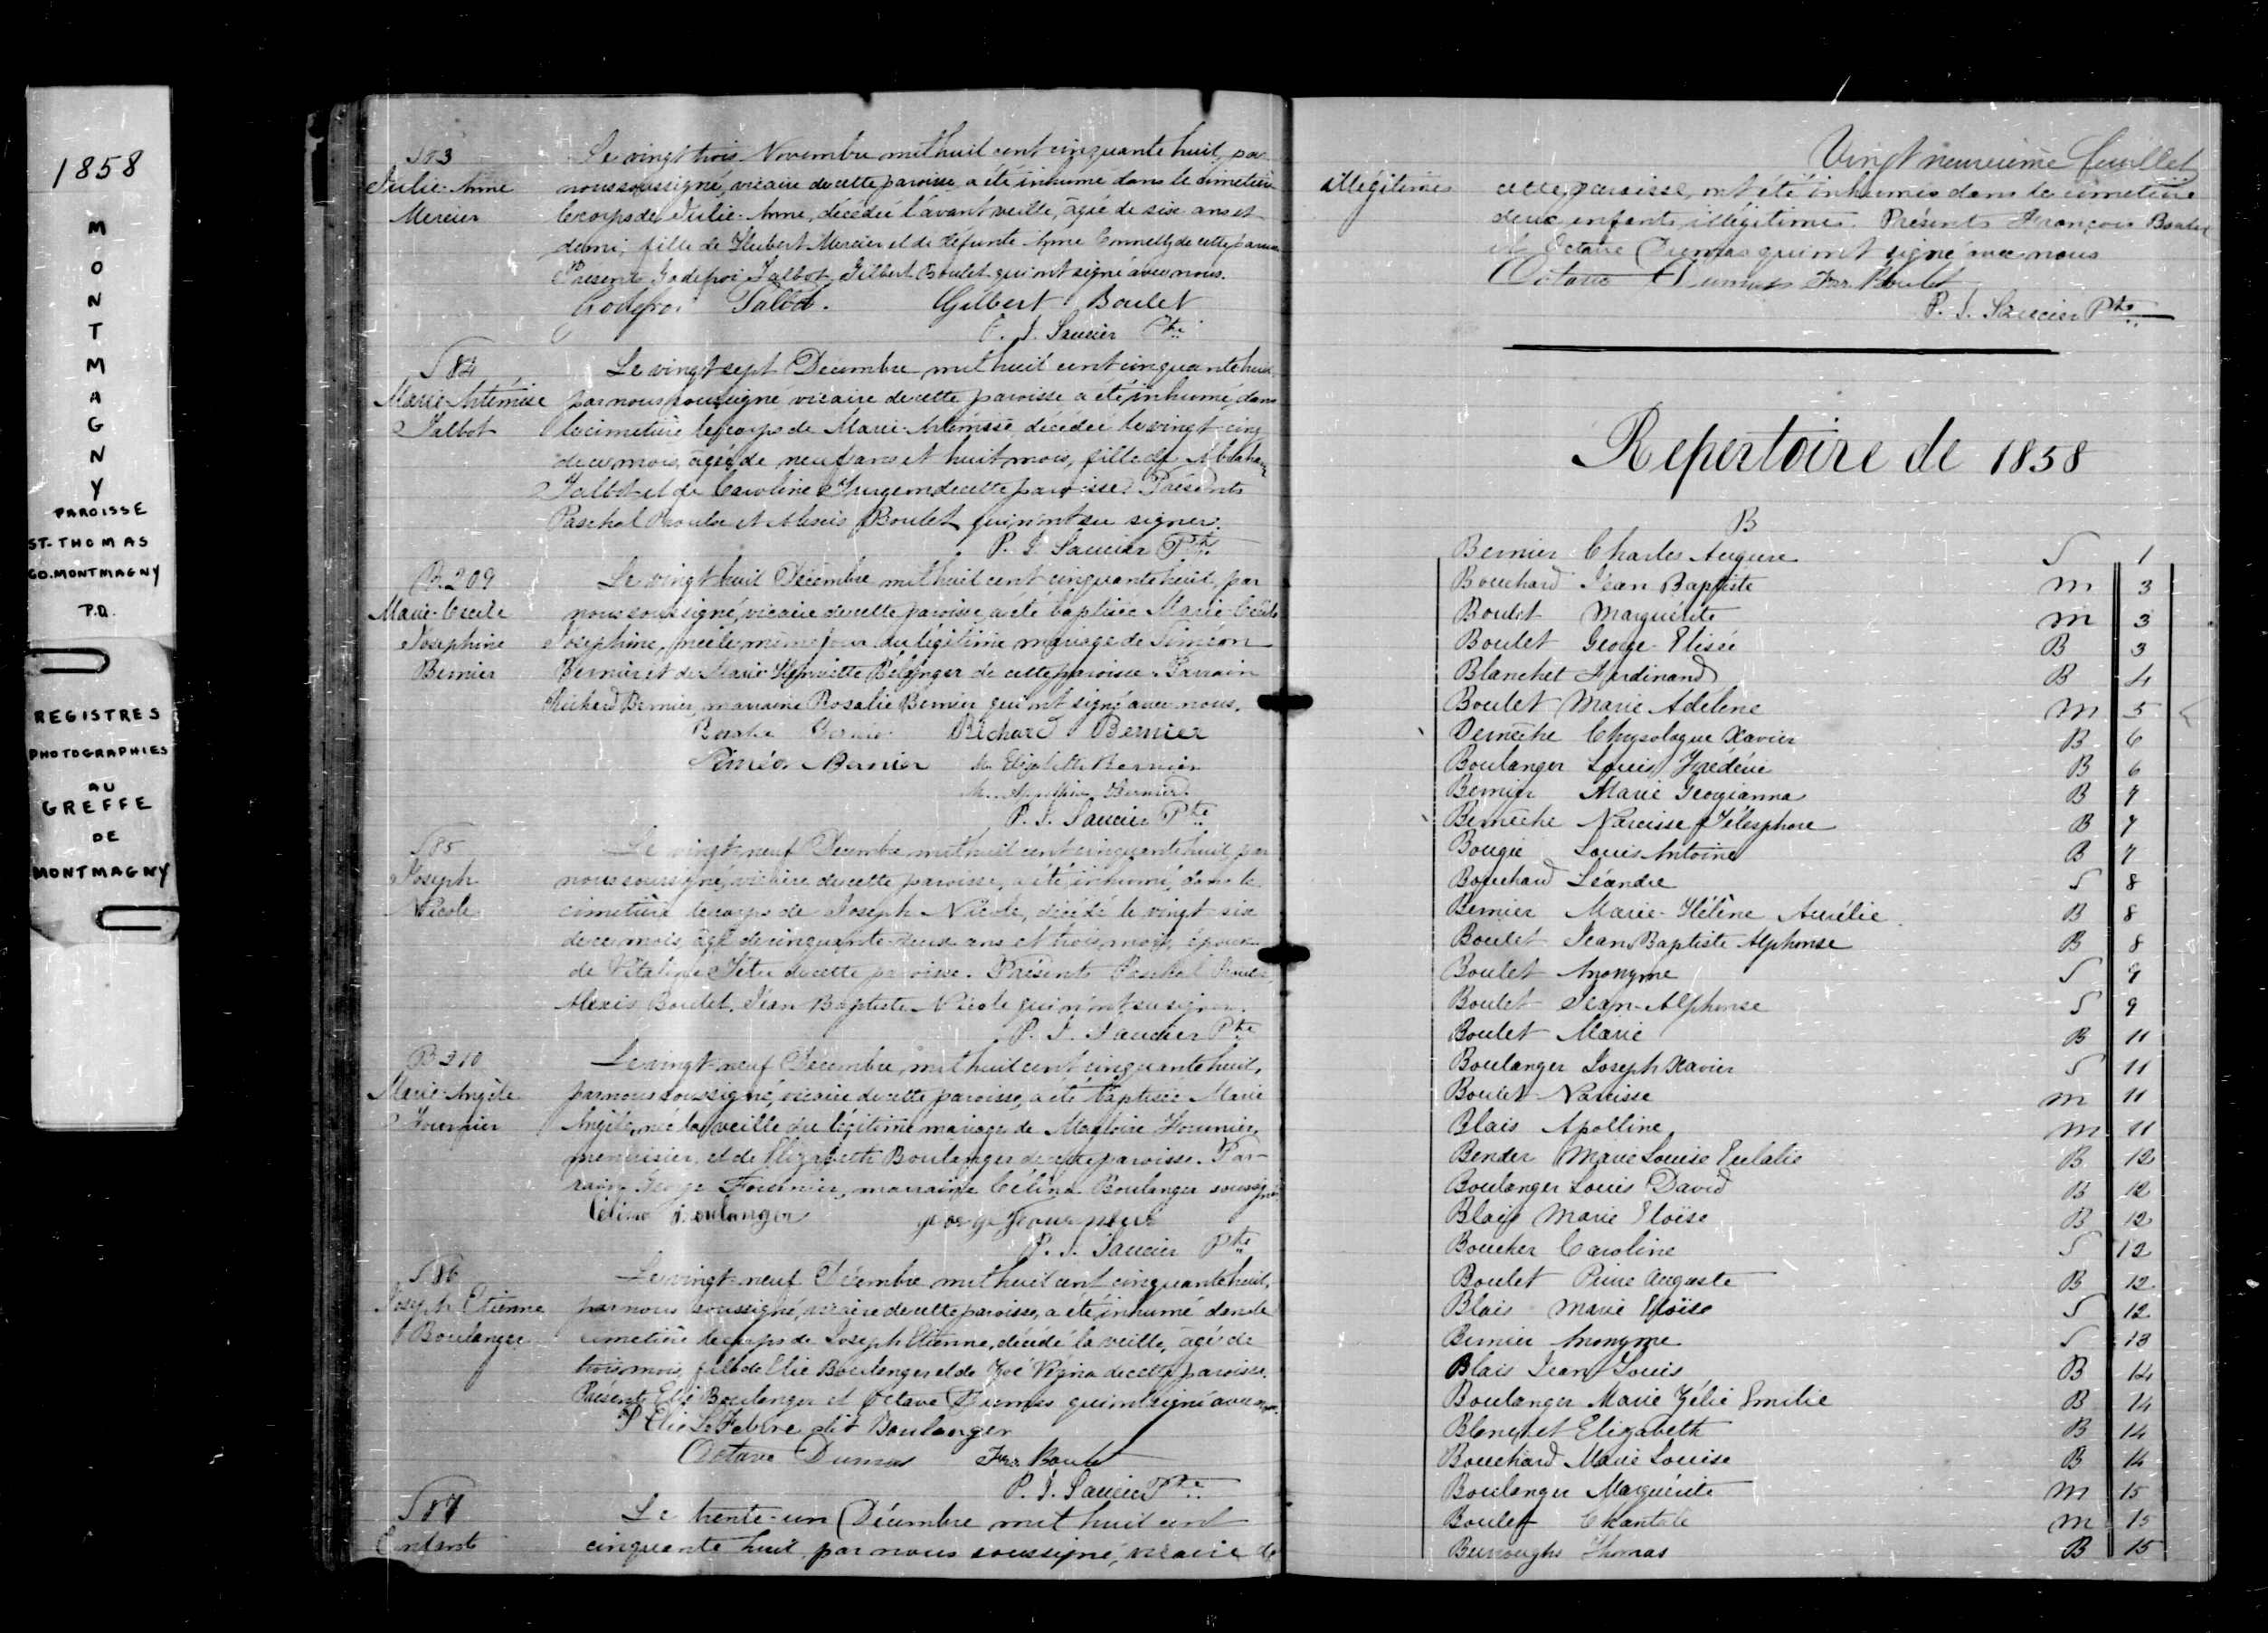 1858
M
O
N
T
M
A
G
N
Y
PAROISSE
ST-THOMAS
CO. MONTMAGNY
P.Q.
REGISTRES
PHOTOGRAPHIES
AU
GREFFE
DE
MONTMAGNY
S 83
Julie-Anne
Mercier
Le vingt trois Novembre mil huit cent cinquante huit, par
nous soussigné, vicaire de cette paroisse a été inhumé dans le cimetière
le corps de Julie-Anne, décédée l'avant veille, âgée de six ans et
demi, fille de Hubert Mercier et de défunte Anne Connelly de cette paroisse
Présents Godefroi Talbot, Gilbert Boulet qui ont signé avec nous.
Godefroi Talbot. Gilbert Boulet
P. J. Saucier Ptre
S 84
Marie-Artémise
Talbot
Le vingt sept Décembre mil huit cent cinquante huit
par nous soussigné vicaire de cette paroisse a été inhumé dans
le cimetière le corps de Marie-Artémise décédée le vingt cinq
de ce mois, âgée de neuf ans et huit mois, fille de Abraham
Talbot et de Caroline de cette paroisse. Présents
Paschal Proulx et Alexis Boulet qui n'ont su signer.
P. J. Saucier Ptre
B. 209
Marie-Cécile
Joséphine
Bernier
Le vingt huit Décembre mil huit cent cinquante huit, par
nous soussigné, vicaire de cette paroisse, a été baptisée Marie Cécile
Joséphine, née le même jour du légitime mariage de Siméon
Bernier et de Marie Henriette Bélanger de cette paroisse. Parrain
Richard Bernier, marraine Rosalie Bernier qui ont signé avec nous.
Rosalie Bernier Richard Bernier
Siméon Bernier M. Elizabeth Bernier
M. Bernier
P. J. Saucier Ptre
S 85
Joseph
Nicole
Le vingt-neuf Décembre mil huit cent cinquante huit, par
nous soussigné, vicaire de cette paroisse, a été inhumé, dans le
cimetière le corps de Joseph Nicole, décédé le vingt six
de ce mois, âgé de cinquante-deux ans et trois mois, époux
de Vitaline Têtu de cette paroisse. Présents Paschal Proulx,
Alexis Boulet, Jean Baptiste Nicole qui n'ont su signer.
P. J. Saucier Ptre
B 210
Marie-Angèle
Fournier
Le vingt-neuf Décembre, mil huit cent cinquante huit,
par nous soussigné, vicaire de cette paroisse, a été baptisée Marie
Angèle, née la veille du légitime mariage de Magloire Fournier,
menuisier, et de Elizabeth Boulanger de cette paroisse. Par-
rain George Fournier, marraine Célina Boulanger soussignés
Célina Boulanger george fournier
P. J. Saucier Ptre
S 86
Joseph Etienne
Boulanger
Le vingt-neuf Décembre mil huit cent cinquante huit,
par nous soussigné, vicaire de cette paroisse, a été inhumé dans le
cimetière le corps de Joseph Etienne, décédé la veille, âgé de
trois mois, fils de Elie Boulanger et de Zoé Vézina de cette paroisse.
Présents Elie Boulanger et Octave Dumas qui ont signé avec nous.
Elie LeFebvre dit Boulanger
Octave Dumas Frs Boulet
P. J. Saucier Ptre
S 87
Enfants
Le trente-un Décembre mil huit cent
cinquante huit, par nous soussigné, vicaire de
Vingt neuvième feuillet
illégitimes
cette paroisse, ont été inhumés dans le cimetière
deux enfants illégitimes. Présents François Boulet
et Octave Dumas qui ont signé avec nous
Octave Dumas Frs Boulet
P. J. Saucier Ptre
Repertoire de 1858
B
Bernier Charles Augure S 1
Bouchard Jean Baptiste m 3
Boulet Marguérite m 3
Boulet George-Elisée B 3
Blanchet Ferdinand B 4
Boulet Marie Adeline m 5
Berneche Chrysologue Xavier B 6
Boulanger Louis B 6
Bernier Marie Georgianna B 7
Berneche Narcisse Télesphore B 7
Bougie Louis Antoine B 7
Bouchard Léandre S 8
Bernier Marie-Hélène Aurélie B 8
Boulet Jean Baptiste Alphonse B 8
Boulet Anonyme S 9
Boulet Jean-Alphonse S 9
Boulet Marie B 11
Boulanger Joseph Xavier S 11
Boulet Narcisse m 11
Blais Apolline m 11
Bender Marie Louise Eulalie B 12
Boulanger Louis David B 12
Blais Marie Eloïse B 12
Boucher Caroline S 12
Boulet Pierre Auguste B 12
Blais Marie Eloïse S 12
Bernier Anonyme S 13
Blais Jean Louis B 14
Boulanger Marie Zélie Emilie B 14
Blanchet Elizabeth B 14
Bouchard Marie Louise B 14
Boulanger Marguerite m 15
Boulet Chantale m 15
Burroughs Thomas B 15